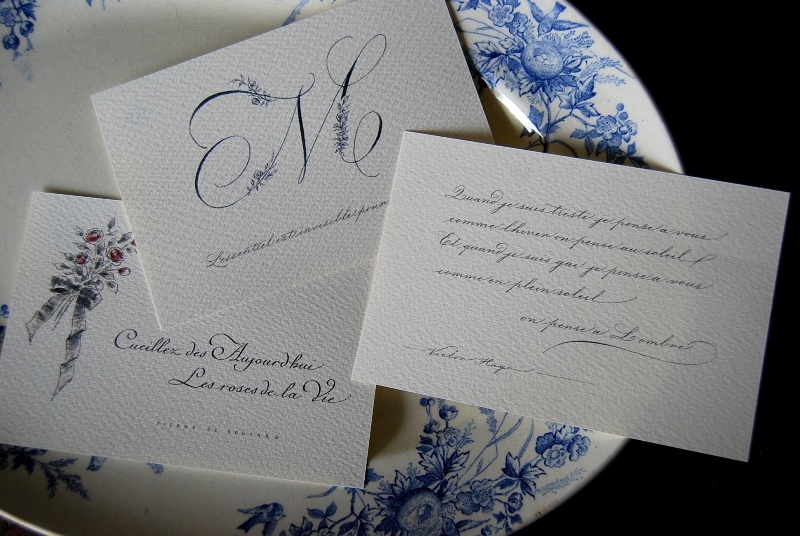 M
L'essentiel est invisible pour
Quand je suis triste je pense a vous
comme l'hiver on pense au soleil
Et quand je suis gai je pense a vous
comme en plein soleil
on pense a L'ombre
Victor Hugo
Cueillez des Aujourd'hui
Les roses de la Vie
PIERRE DE RONSARD